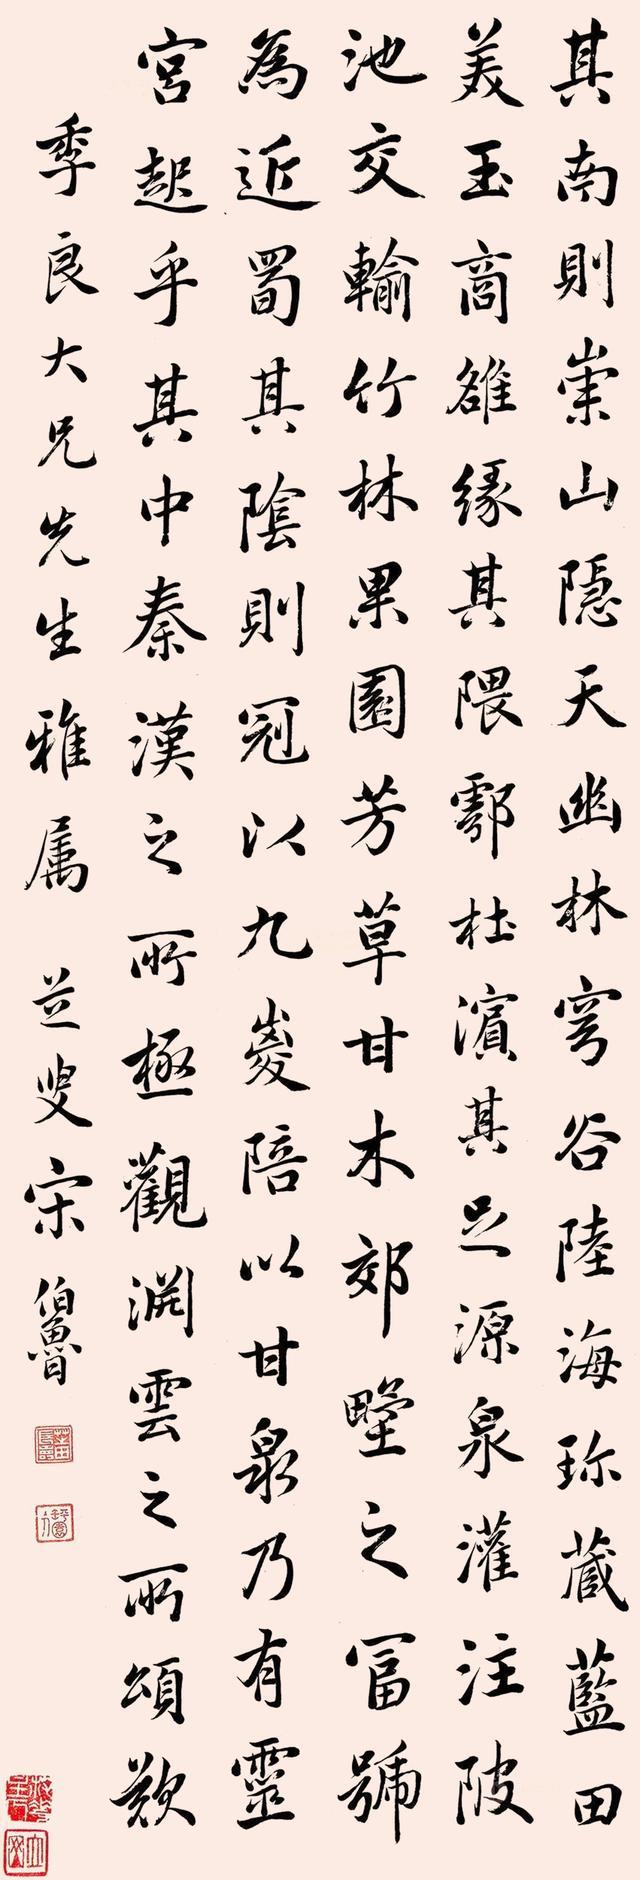 其南則崇山隱天幽林穹谷陸海珎蔵藍田
美玉商雒緣其隈鄠杜濱其足源泉灌注陂
池交輸竹林果園芳草甘木郊壄之富號
為近蜀其陰則冠以九嵏陪以甘泉乃有靈
宮起乎其中秦漢之所極觀淵雲之所頌歎
季良大兄先生雅属 芝叟宋伯魯